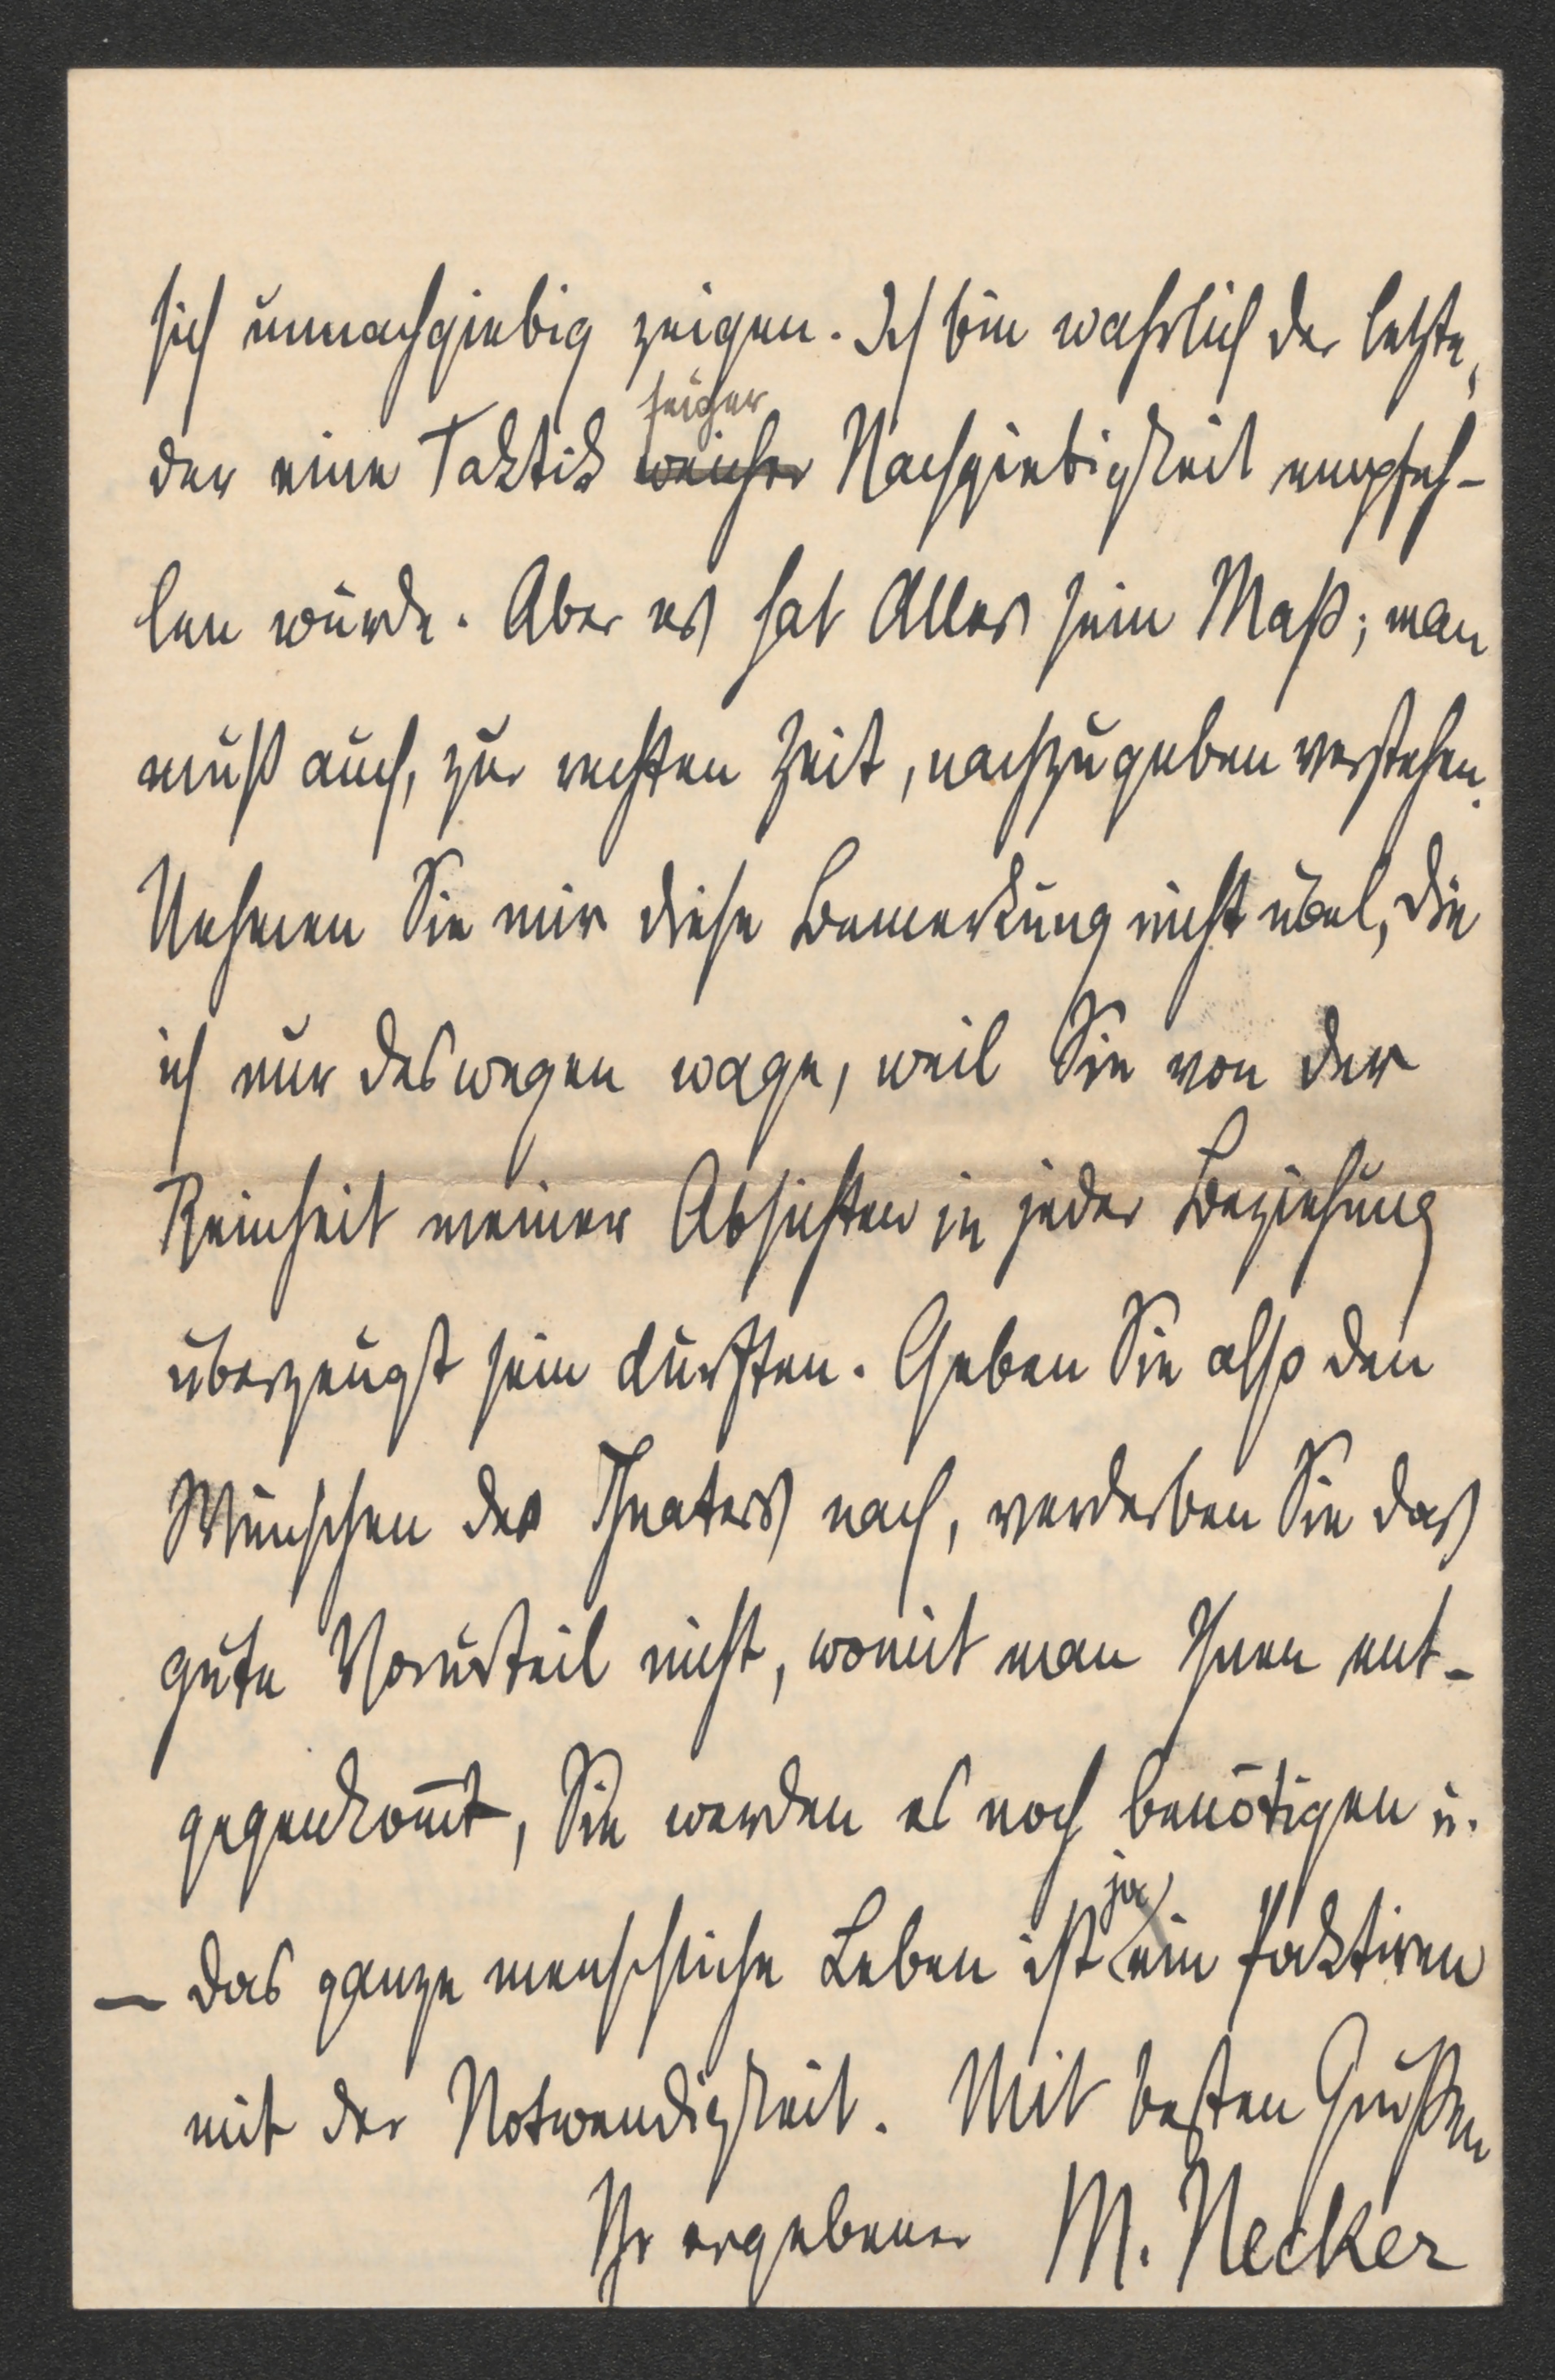 sich unnachgiebig zeigen. Ich bin wahrlich der letzte,
feiger
der eine Taktik weicher Nachgiebigkeit empfeh-
len würde. Aber es hat Alles sein Maß; man
muß auch, zur rechten Zeit, nachzugeben verstehen.
Nehmen Sie mir diese Bemerkung nicht übel, die
ich nur deswegen wage, weil Sie von der
Reinheit meiner Absichten in jeder Beziehung
überzeugt sein dürften. Geben Sie also den
Wünschen des Theaters nach, verderben Sie das
gute Vorurteil nicht, womit man Ihnen ent-
gegenkom̅t, Sie werden es noch benötigen u.
ja
— das ganze menschliche Leben ist ein Paktiren
mit der Notwendigkeit. Mit besten Grüßen
Ihr ergebener M. Necker